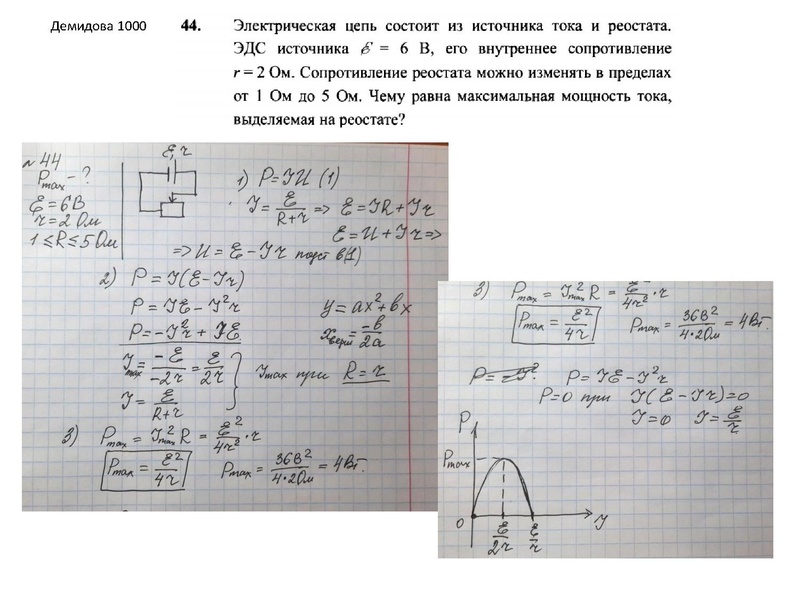 Демидова 1000
44. Электрическая цепь состоит из источника тока и реостата.
ЭДС источника ℰ = 6 В, его внутреннее сопротивление
r = 2 Ом. Сопротивление реостата можно изменять в пределах
от 1 Ом до 5 Ом. Чему равна максимальная мощность тока,
выделяемая на реостате?
№ 44
Pmax - ?
ℰ = 6В
r = 2 Ом
1 ≤ R ≤ 5 Ом
ℰ, r
1) P = IU (1)
I = ℰ/(R+r) => ℰ = IR + Ir
ℰ = U + Ir =>
=> U = ℰ - Ir подст в (1)
2) P = I(ℰ - Ir)
P = Iℰ - I²r
P = -I²r + Iℰ
y = ax² + bx
xверш = -b/2a
Imax = -ℰ/-2r = ℰ/2r
I = ℰ/(R+r)
Imax при R = r
3) Pmax = I²max R = ℰ²/4r² · r
Pmax = ℰ²/4r
Pmax = 36В²/4·2Ом = 4Вт.
3) Pmax = I²max R = ℰ²/4r² · r
Pmax = ℰ²/4r
Pmax = 36В²/4·2Ом = 4Вт.
P = Iℰ - I²r
P = 0 при I(ℰ - Ir) = 0
I = 0 I = ℰ/r
P
Pmax
0
ℰ/2r
ℰ/r
I